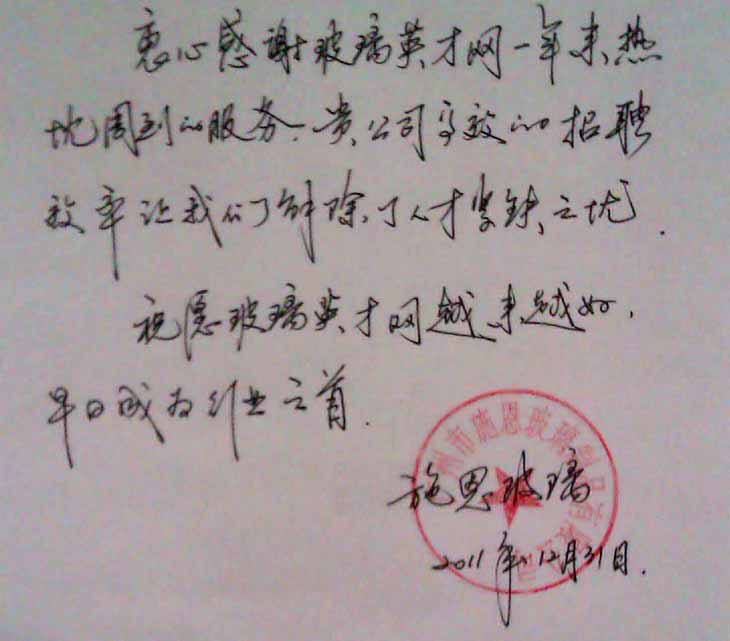 衷心感谢玻璃英才网一年来热
忱周到的服务.贵公司高效的招聘
效率让我们解除了人才紧缺之忧.
祝愿玻璃英才网越来越好,
早日成为行业之首.
施恩玻璃
2011年12月31日.
州市施恩玻璃制品有限公司